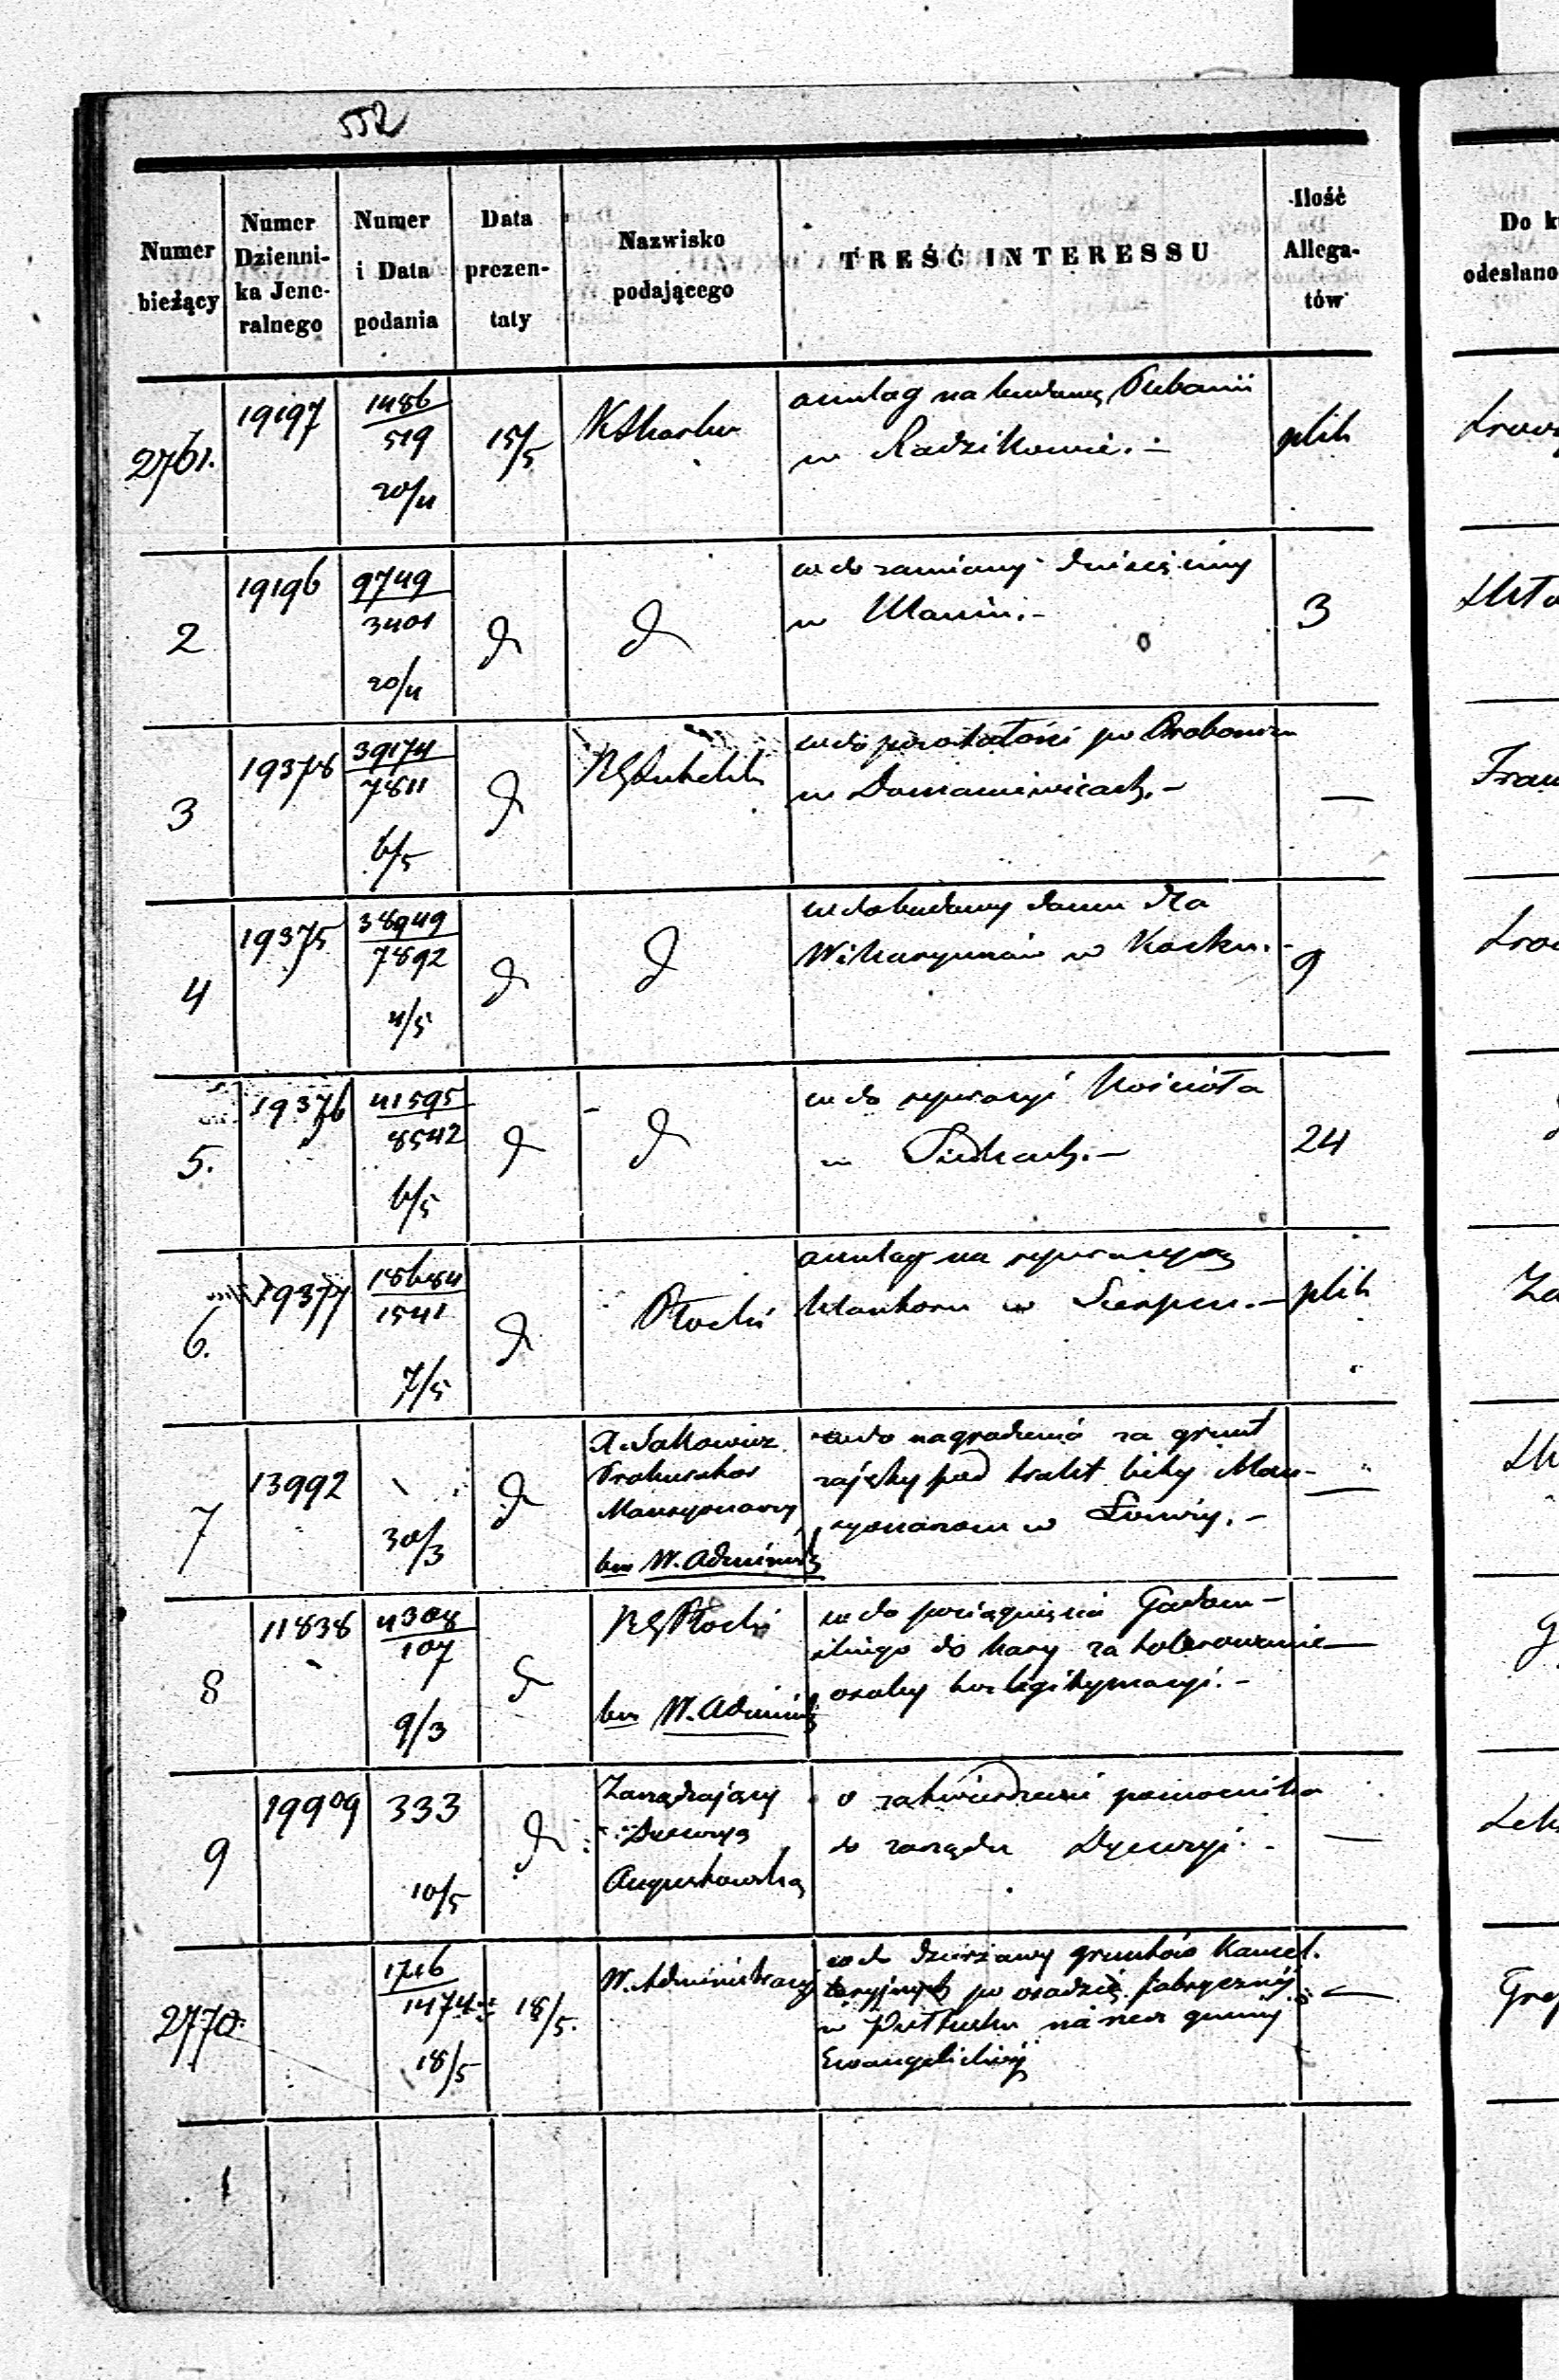 552
Numer bieżący
Numer Dziennika Jeneralnego
Numer i Data podania
Data prezentaty
Nazwisko podającego
TREŚĆ INTERESSU
Ilość Allegatów
Do k
odesłano
2761. 19197 1486/519 20/4 15/5 K Skarbu
anszlag na budowę Plebanii
w Radzikowie. –
plik
2 19196 9749/3401 20/4 d d
wzdo zamiany dziesięciny
w Ulanin. –
3
3 19378 39174/7811 6/5 d RG Lubelski
wzdo pozostałości po Probosz
w Domaniewicach. –
—
4 19375 38949/7892 4/5 d d
wzdo budowy domu dla
Wikaryuszów w Kocku. –
9
5. 19376 41595/8542 6/5 d d
wzdo reperacyi Kościoła
w Piekach. –
24
6. 19377 18684/1541 7/5 d Płocki
anszlag na reperacyę
klasztoru w Sierpcu. –
plik
7 13992 30/3 d
X. Sakowicz
Prokurator
Mansyonarzy
bez W. Administr
wzdo nagrodzenia za grunt
zajęty pod trakt bity Man-
syonarzom w Łowiczu. –
—
8 11838 4308/107 9/3 d
RG Płocki
bez W. Administr
wzdo pociągnięcia Gadom-
skiego do kary za tolerowanie
osoby bez legitymacyi. –
—
9 19909 333 10/5 d
Zarządzający
Dyecezyą
Augustowską
o zatwierdzenie pomocnika
do zarządu Dyecezyi. –
—
2770. 1716/1474 18/5 18/5.
W. Administracyj
wzdo dzierżawy gruntów Kamel.
teryjnych po osadzie fabrycznéj
w Pułtusku na rzecz gminy
Ewangelickiéj
—